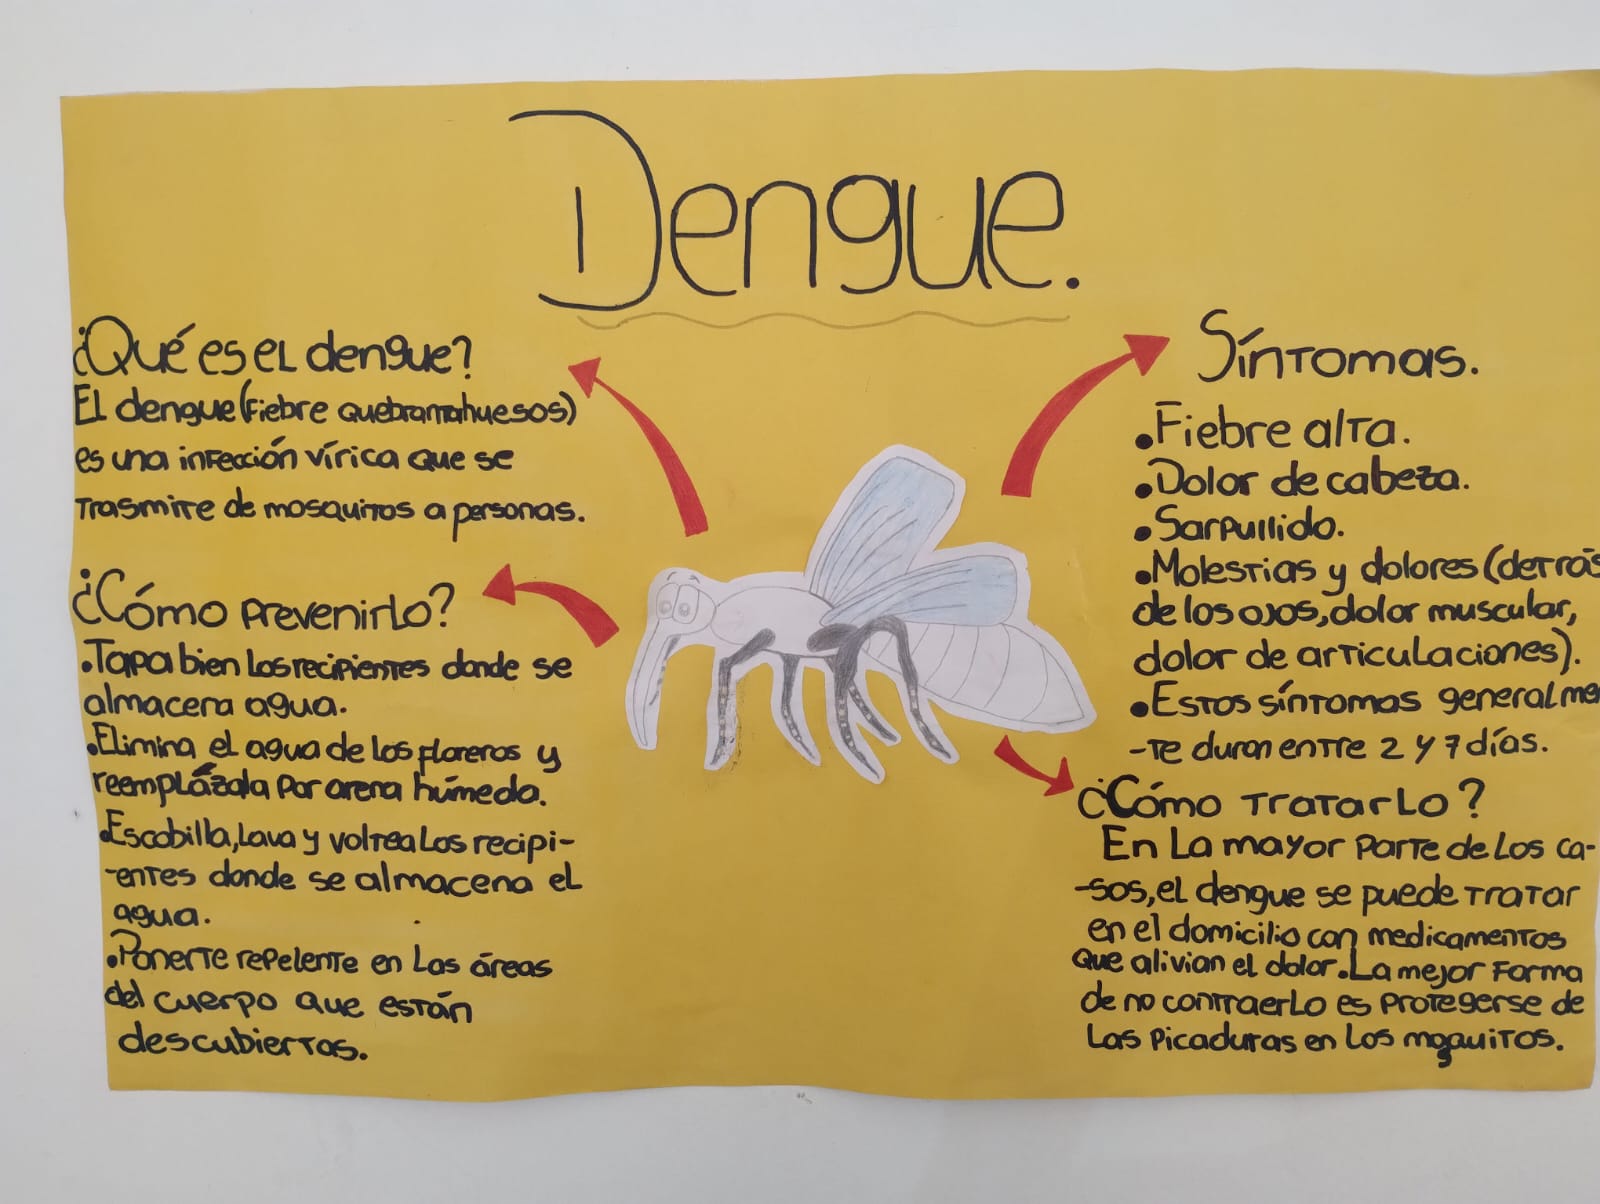 Dengue.
¿Qué es el dengue?
El dengue (fiebre quebrantahuesos)
es una infección vírica que se
trasmite de mosquitos a personas.
¿Cómo prevenirlo?
• Tapa bien los recipientes donde se
almacena agua.
• Elimina el agua de los floreros y
reemplázala por arena húmeda.
• Escobilla, lava y voltea los recipi-
-entes donde se almacena el
agua.
• Ponerte repelente en las áreas
del cuerpo que están
descubiertas.
Síntomas.
• Fiebre alta.
• Dolor de cabeza.
• Sarpullido.
• Molestias y dolores (detrás
de los ojos, dolor muscular,
dolor de articulaciones).
• Estos síntomas generalmen
-te duran entre 2 y 7 días.
¿Cómo tratarlo?
En la mayor parte de los ca-
-sos, el dengue se puede tratar
en el domicilio con medicamentos
que alivian el dolor. La mejor forma
de no contraerlo es protegerse de
las picaduras en los mosquitos.